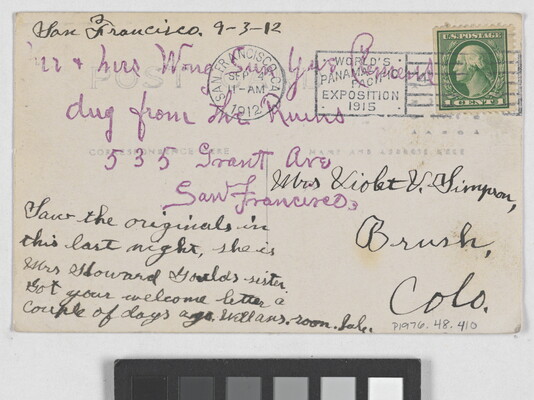 San Francisco. 9-3-12
Mr & Mrs Wong Sun Yue Clemens
dug from the Ruins
535 Grant Ave
San Francisco
POST
CORRESPONDENCE HERE
NAME AND ADDRESS HERE
SAN FRANCISCO, CAL.
SEP
11-AM
1912
WORLD'S
PANAMA-PACIFIC
EXPOSITION
1915
U.S. POSTAGE
1 CENT 1
Mrs Violet V. Simpson,
Brush,
Colo.
Saw the originals in
this last night, she is
Mrs Howard Gould's sister.
Got your welcome letter a
couple of days ago. Will ans. soon.
P1976.48.410